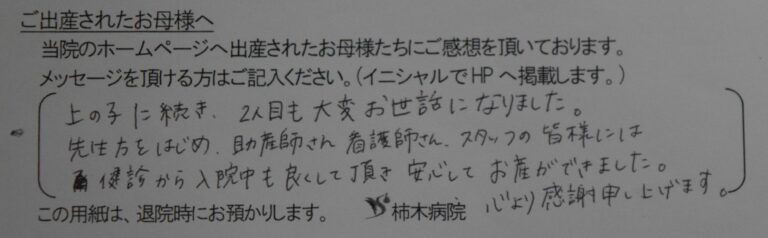 ご出産されたお母様へ
当院のホームページへ出産されたお母様たちにご感想を頂いております。
メッセージを頂ける方はご記入ください。(イニシャルでHPへ掲載します。)
上の子に続き、2人目も大変お世話になりました。
先生方をはじめ、助産師さん 看護師さん、スタッフの皆様には
健診から入院中も良くして頂き 安心して お産ができました。
心より感謝申し上げます。
この用紙は、退院時にお預かりします。 柿木病院